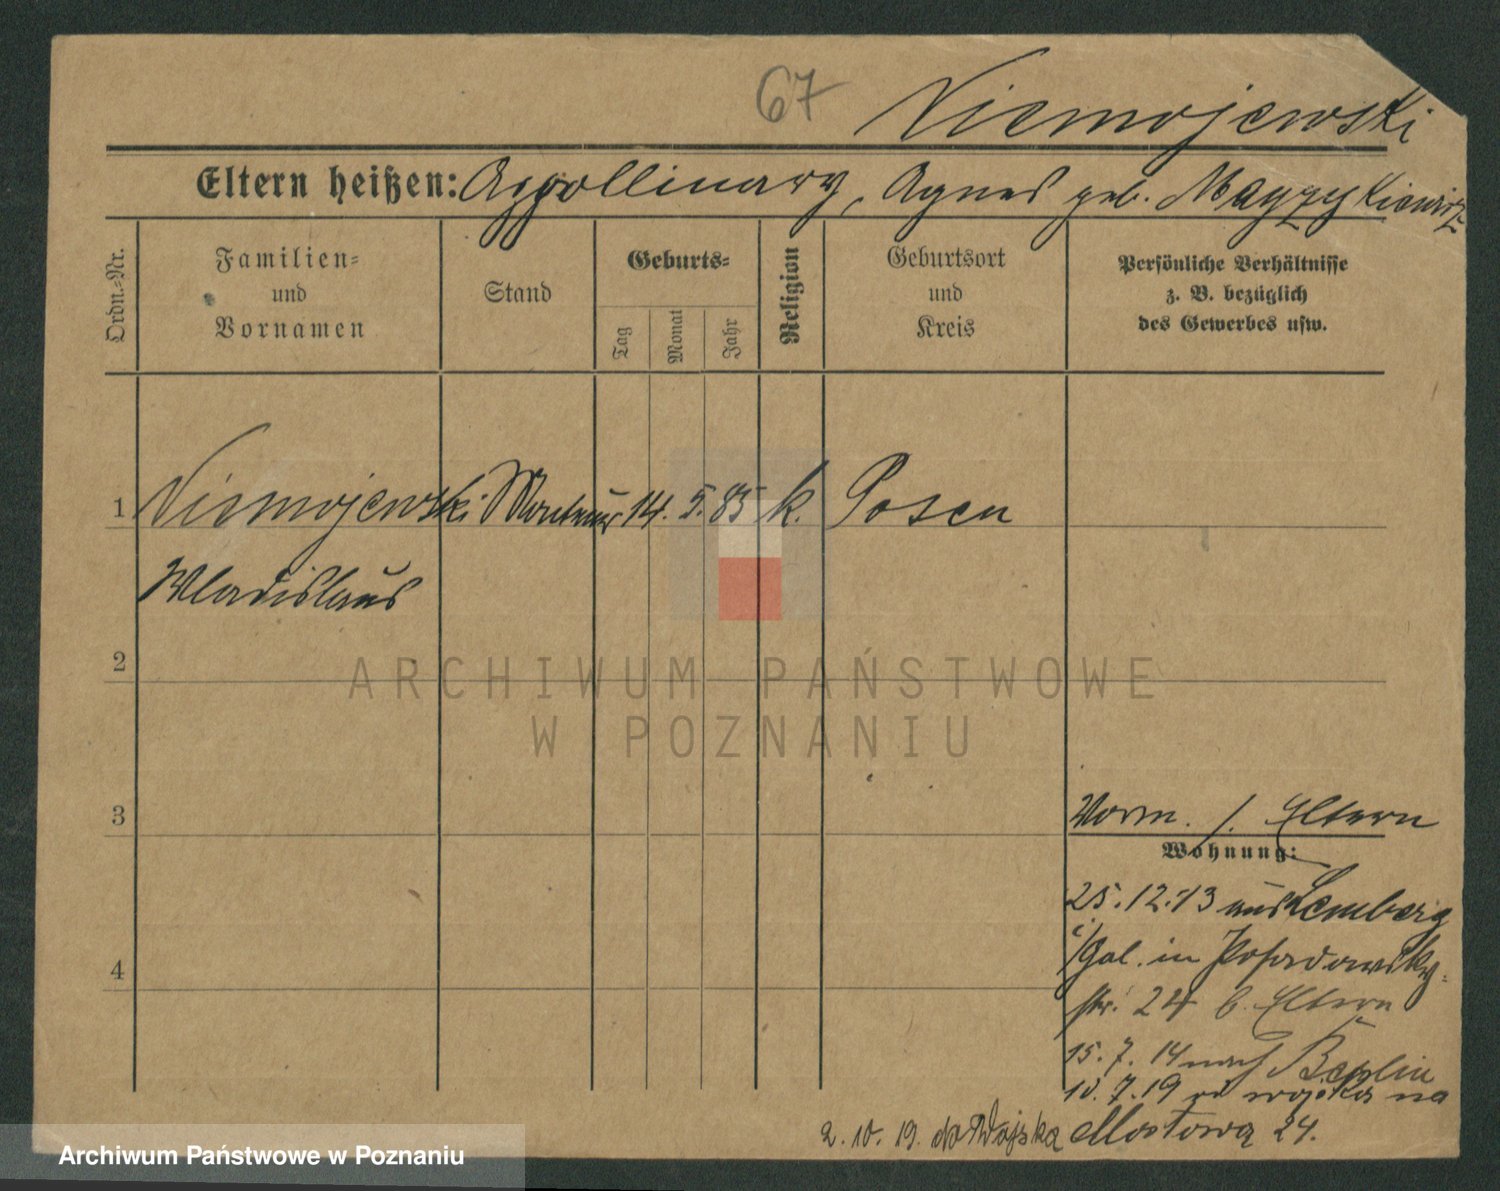 67
Niemojewski
Eltern heißen: Appollinary, Agnes geb.
Ordn.-Nr.
Familien-
und
Vornamen
Stand
Geburts-
Tag
Monat
Jahr
Religion
Geburtsort
und
Kreis
Persönliche Verhältnisse
z. B. bezüglich
des Gewerbes usw.
1 Niemojewski Monteur 14. 5. 85 k. Posen
Wladislaus
2
ARCHIWUM PAŃSTWOWE
W POZNANIU
3
Vorm. s. Eltern
Wohnung:
25.12.13 aus Lemberg
i/Gal. in Posadowsky-
str. 24 b. Eltern
15.7.14 nach Berlin
10.7.19 od wojska na
4
2.10.19. do Wojska Mostowa 24.
Archiwum Państwowe w Poznaniu